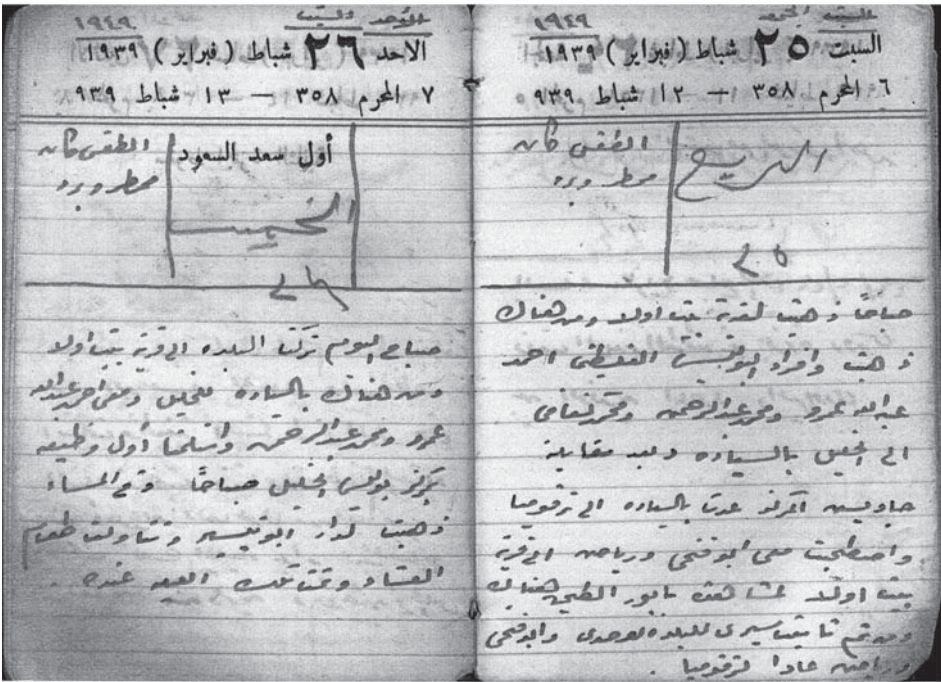 السبت الجمعه ١٩٤٩
السبت ٢٥ شباط (فبراير) ١٩٣٩
٦ المحرم ٣٥٨ — ١٢ شباط ٩٣٩
الطقس كان
ممطر وبرد
٢٥
صباحًا ذهبت لقرية بيت اولا ومن هناك
ذهبت وافراد البوليس احمد
عبدالله عمرو ومحمد عبدالرحمن ومحمد
الى الخليل بالسياره وبعد مقابلة
جاويش المركز عدت بالسياره الى ترقوميا
واصطحبت معي ابو فتحي ورباحن الى قرية
بيت اولا لمشاهدة بابور الطحين هناك
ومن ثم تابعت سيري للبلده لوحدي وابو فتحي
عادا لترقوميا .
الأحد والسبت ١٩٤٩
الاحد ٢٦ شباط (فبراير) ١٩٣٩
٧ المحرم ٣٥٨ — ١٣ شباط ٩٣٩
أول سعد السعود
الطقس كان
ممطر وبرد
الخميس
صباح اليوم تركت البلده الى قرية بيت اولا
ومن هناك بالسياره للخليل ومعي احمد عبدالله
عمرو ومحمد عبدالرحمن واستلمنا أول وظيفه
بمركز بوليس الخليل صباحًا وفي المساء
ذهبت لدار وتناولت طعام
العشاء ونمت تلك الليله عنده .